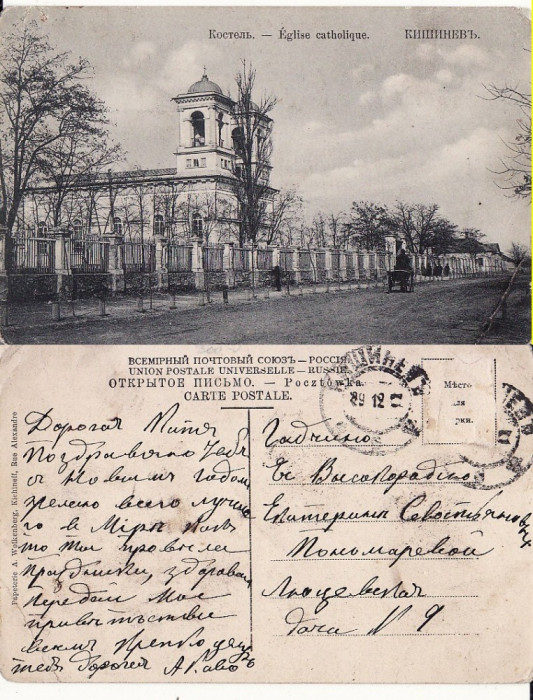 Костелъ. — Église catholique. КИШИНЕВЪ.
ВСЕМІРНЫЙ ПОЧТОВЫЙ СОЮЗЪ.—РОССІЯ.
UNION POSTALE UNIVERSELLE.—RUSSIE.
ОТКРЫТОЕ ПИСЬМО. — Pocztówka.
CARTE POSTALE.
КИШИНЕВЪ
29 12 11
Мѣсто
для
марки.
Papeterie A. Wolkenberg, Kichineff, Rue Alexandre
Дорогая Катя
Поздравляю Тебя
с Новымъ годомъ
желаю всего лучша
го в Мірѣ Какъ
то Ты провела
праздники, здорова
передай Мое
привѣтствіе
всемъ крепко целу
Тебя дорогая
Гатчино
Ея Высокородію
Екатеринѣ Севостьяновнѣ
Пономаревой
Люцевская
дача N 9